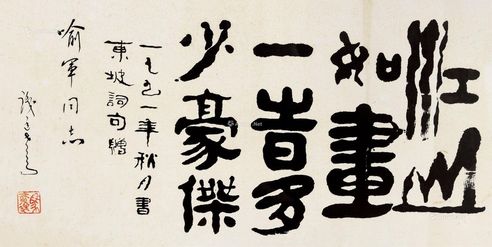 江山
如畫
一旹多
少豪傑
一九九一年秋月書
東坡詞句贈
喻軍同志